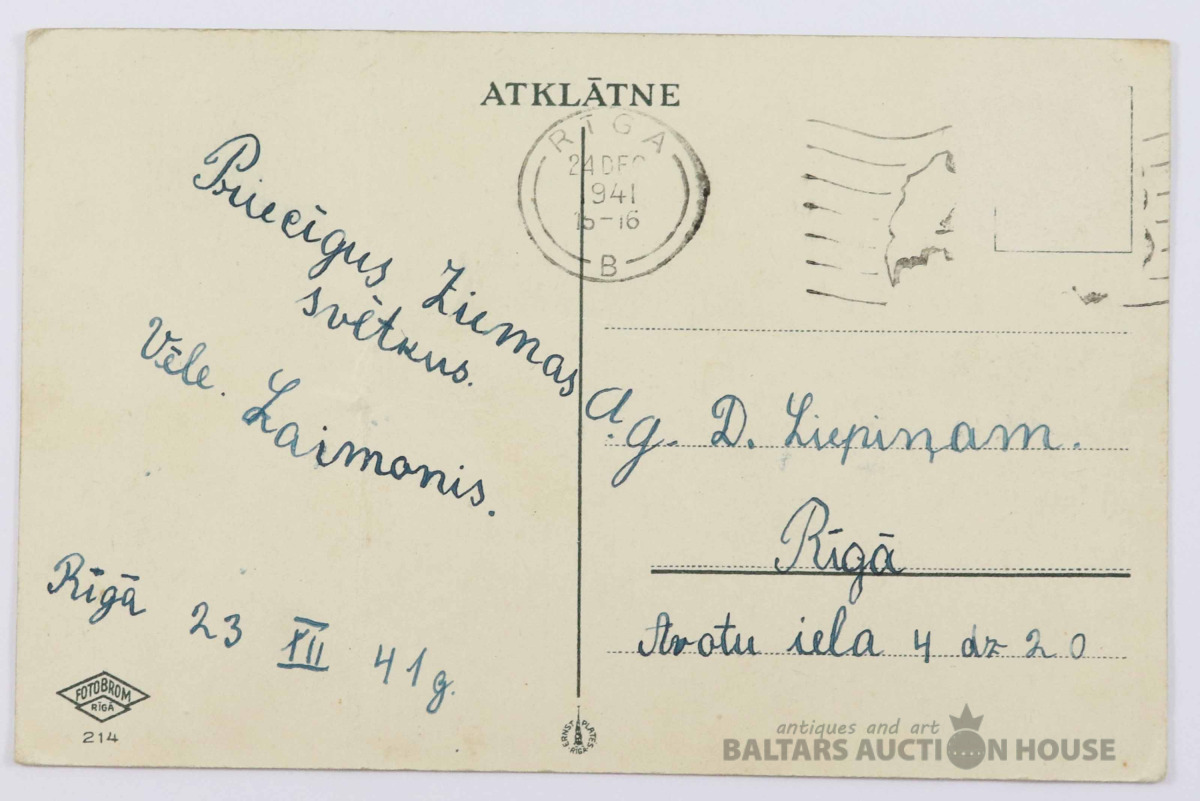 ATKLĀTNE
RĪGA
24 DEC
1941
15-16
B
Priecīgus Ziemas
svētkus.
Vēle. Laimonis.
Rīgā 23 XII 41 g.
A. g. D. Liepiņam.
Rīgā
Avotu iela 4 dz 20
FOTOBROM
RĪGĀ
214
ERNST PLATES
RĪGĀ
antiques and art
BALTARS AUCTION HOUSE